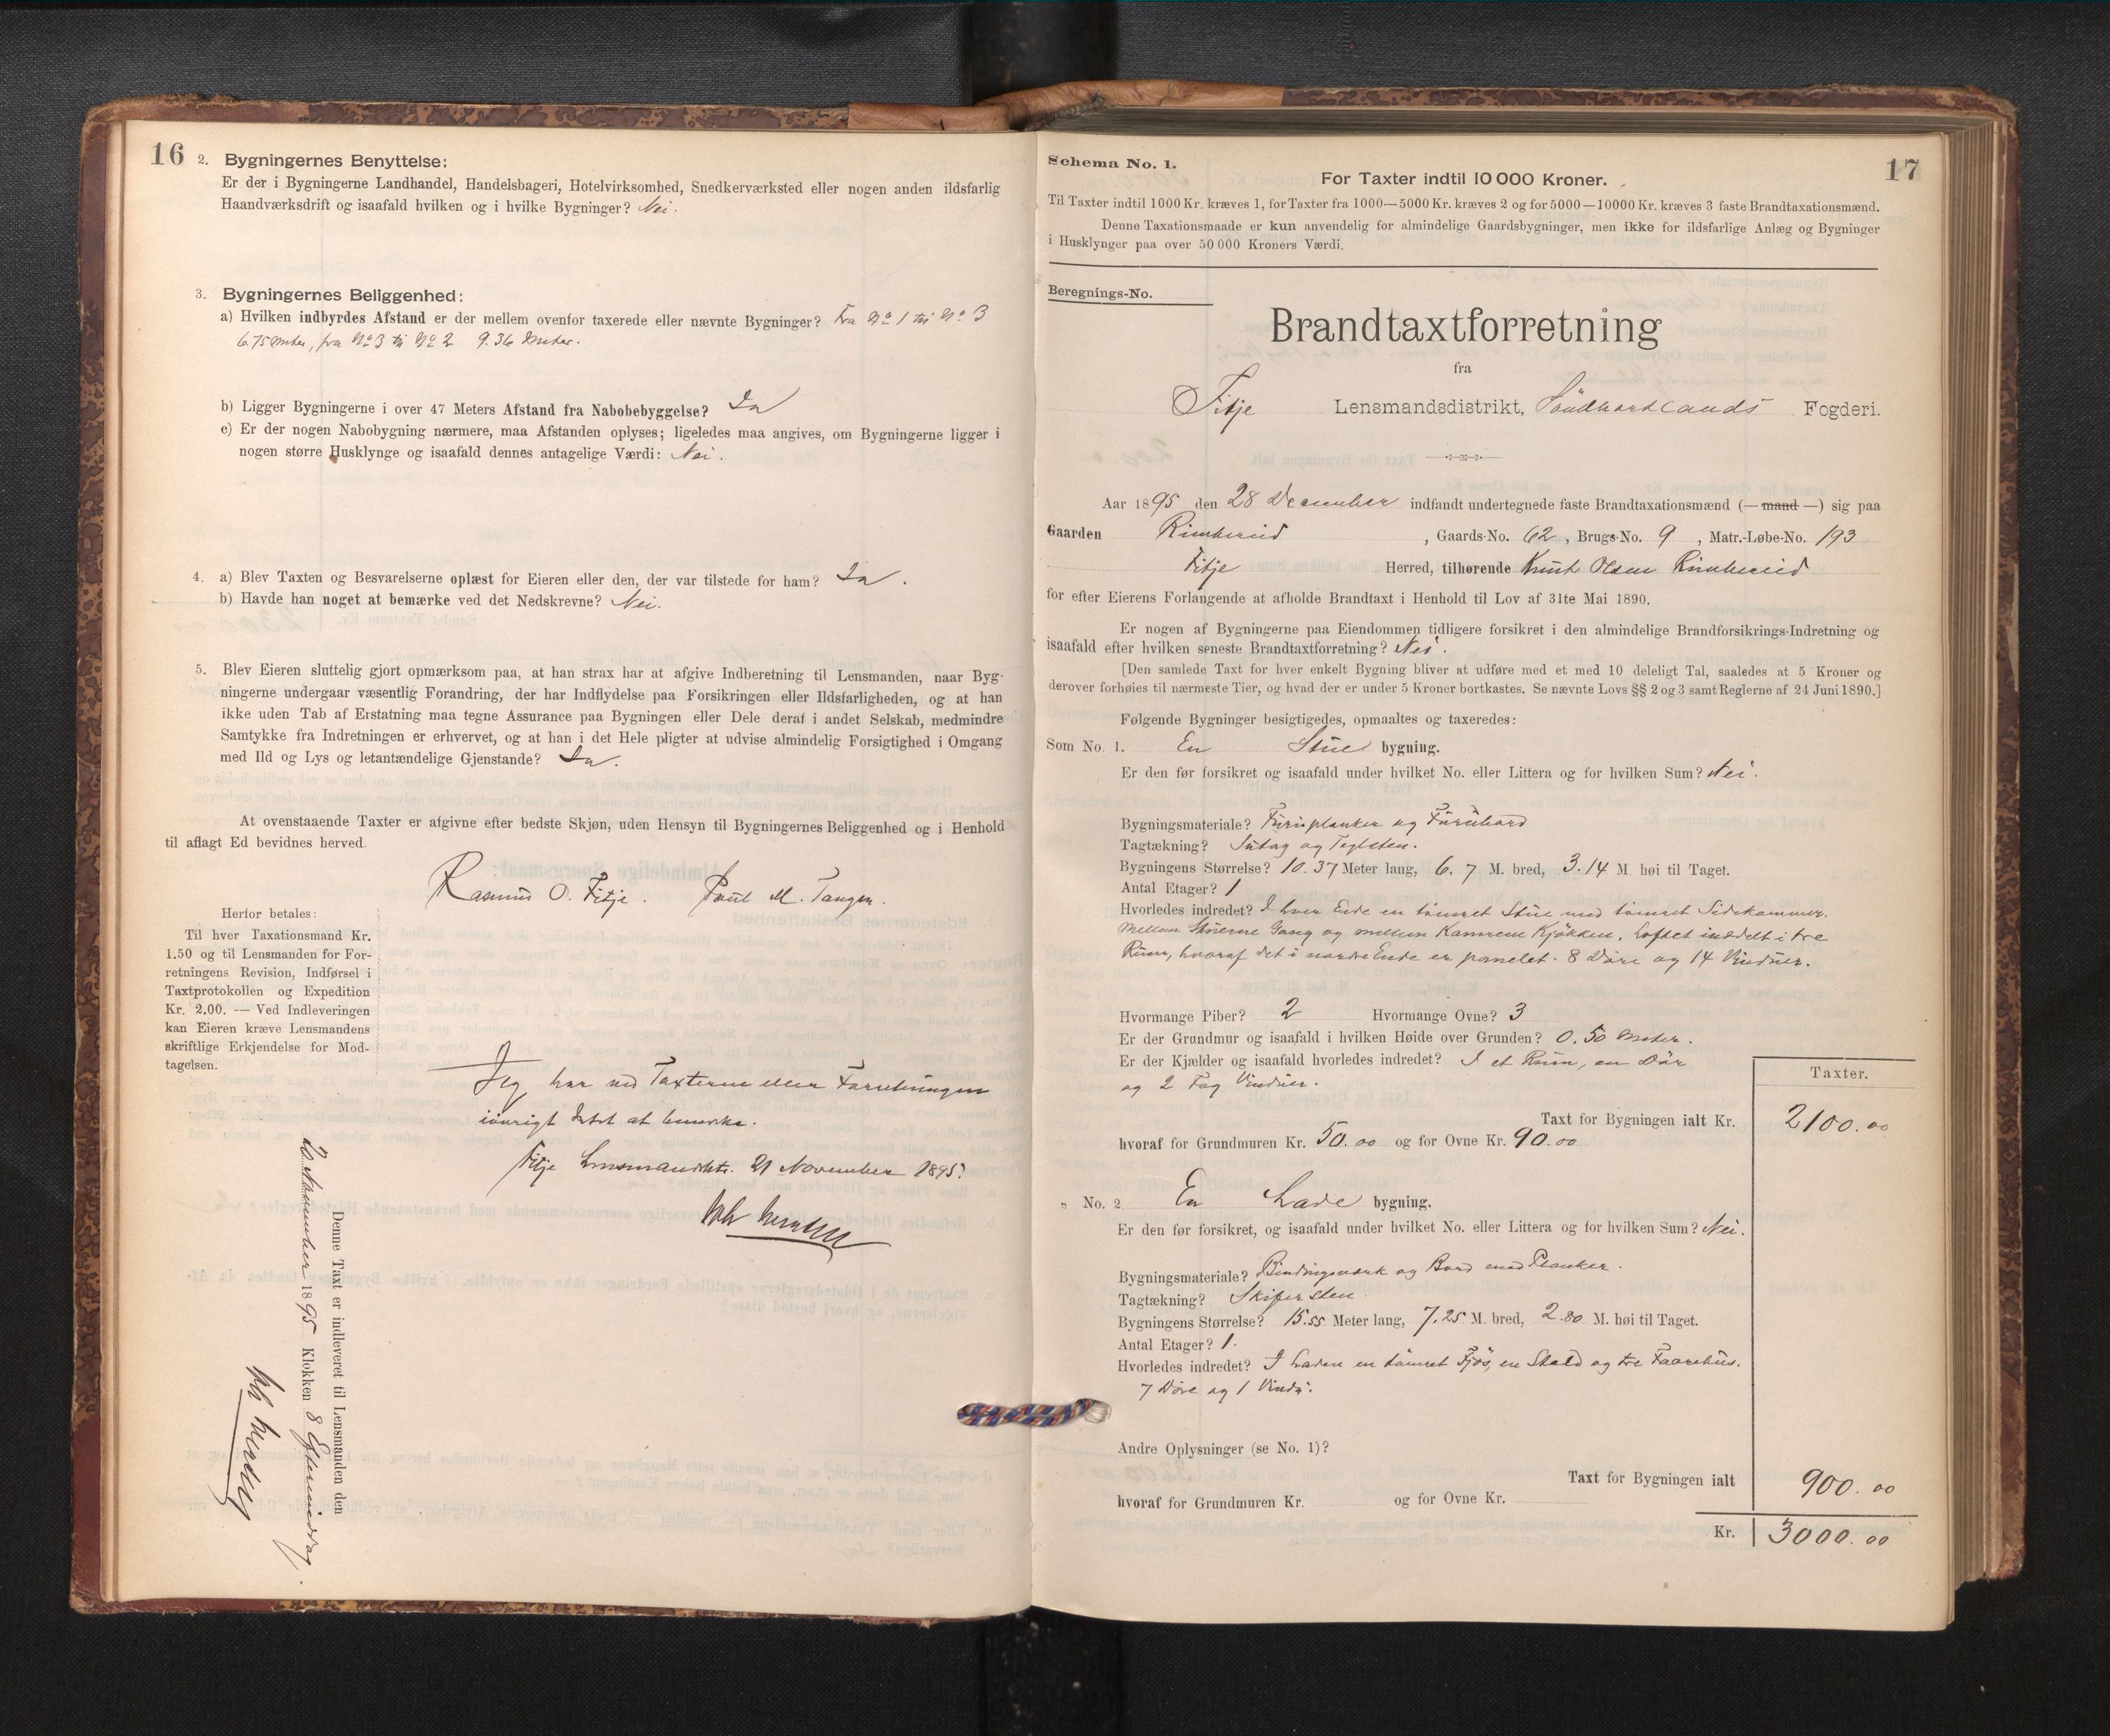 16
2. Bygningernes Benyttelse:
Er der i Bygningerne Landhandel, Handelsbageri, Hotelvirksomhed, Snedkerværksted eller nogen anden ildsfarlig
Haandværksdrift og isaafald hvilken og i hvilke Bygninger? Nei.
3. Bygningernes Beliggenhed:
a) Hvilken indbyrdes Afstand er der mellem ovenfor taxerede eller nævnte Bygninger? Fra No 1 til No 3
6.75 Meter, fra No 3 til No 2 9.36 Meter.
b) Ligger Bygningerne i over 47 Meters Afstand fra Nabobebyggelse? Ja
c) Er der nogen Nabobygning nærmere, maa Afstanden oplyses; ligeledes maa angives, om Bygningerne ligger i
nogen større Husklynge og isaafald dennes antagelige Værdi: Nei.
4. a) Blev Taxten og Besvarelserne oplæst for Eieren eller den, der var tilstede for ham? Ja.
b) Havde han noget at bemærke ved det Nedskrevne? Nei.
5. Blev Eieren sluttelig gjort opmærksom paa, at han strax har at afgive Indberetning til Lensmanden, naar Byg-
ningerne undergaar væsentlig Forandring, der har Indflydelse paa Forsikringen eller Ildsfarligheden, og at han
ikke uden Tab af Erstatning maa tegne Assurance paa Bygningen eller Dele deraf i andet Selskab, medmindre
Samtykke fra Indretningen er erhvervet, og at han i det Hele pligter at udvise almindelig Forsigtighed i Omgang
med Ild og Lys og letantændelige Gjenstande? Ja.
At ovenstaaende Taxter er afgivne efter bedste Skjøn, uden Hensyn til Bygningernes Beliggenhed og i Henhold
til aflagt Ed bevidnes herved.
Rasmus O. Fitje. Poul M. Tangen.
Herfor betales:
Til hver Taxationsmand Kr.
1.50 og til Lensmanden for For-
retningens Revision, Indførsel i
Taxtprotokollen og Expedition
Kr. 2.00. — Ved Indleveringen
kan Eieren kræve Lensmandens
skriftlige Erkjendelse for Mod-
tagelsen.
Jeg har ved Taxterne eller Forretningen
iøvrigt Intet at bemerke.
Fitje Lensmandsktr. 21 November 1895.
Denne Taxt er indleveret til Lensmanden den
20 November 1895 Klokken 8 Eftermiddag.
17
Schema No. 1.
For Taxter indtil 10 000 Kroner.
Til Taxter indtil 1000 Kr. kræves 1, for Taxter fra 1000—5000 Kr. kræves 2 og for 5000—10000 Kr. kræves 3 faste Brandtaxationsmænd.
Denne Taxationsmaade er kun anvendelig for almindelige Gaardsbygninger, men ikke for ildsfarlige Anlæg og Bygninger
i Husklynger paa over 50 000 Kroners Værdi.
Beregnings-No.
Brandtaxtforretning
fra
Fitje Lensmandsdistrikt, Söndhordlands Fogderi.
Aar 1895 den 28 December indfandt undertegnede faste Brandtaxationsmænd (— mand —) sig paa
Gaarden Rimbereid, Gaards-No. 62, Brugs-No. 9, Matr.-Løbe-No. 193
Fitje Herred, tilhørende Knut Olsen Rimbereid
for efter Eierens Forlangende at afholde Brandtaxt i Henhold til Lov af 31te Mai 1890.
Er nogen af Bygningerne paa Eiendommen tidligere forsikret i den almindelige Brandforsikrings-Indretning og
isaafald efter hvilken seneste Brandtaxtforretning? Nei.
[Den samlede Taxt for hver enkelt Bygning bliver at udføre med et med 10 deleligt Tal, saaledes at 5 Kroner og
derover forhøies til nærmeste Tier, og hvad der er under 5 Kroner bortkastes. Se nævnte Lovs §§ 2 og 3 samt Reglerne af 24 Juni 1890.]
Følgende Bygninger besigtigedes, opmaaltes og taxeredes:
Som No. 1. En Stue bygning.
Er den før forsikret og isaafald under hvilket No. eller Littera og for hvilken Sum? Nei.
Bygningsmateriale? Furuplanker og Furubord
Tagtækning? Sutag og Teglsten.
Bygningens Størrelse? 10.37 Meter lang, 6.7 M. bred, 3.14 M. høi til Taget.
Antal Etager? 1
Hvorledes indredet? I hver Ende en tömret Stue med tömret Sidekammer.
Mellem Stuerne Gang og mellem Kamrene Kjökken. Loftet inddelt i tre
Rum, hvoraf det i nordre Ende er panelet. 8 Döre og 14 Vinduer.
Hvormange Piber? 2 Hvormange Ovne? 3
Er der Grundmur og isaafald i hvilken Høide over Grunden? 0.50 Meter.
Er der Kjælder og isaafald hvorledes indredet? I et Rum, en Dör
og 2 Fag Vinduer.
Taxter.
Taxt for Bygningen ialt Kr. 2100.00
hvoraf for Grundmuren Kr. 50.00 og for Ovne Kr. 90.00
„ No. 2 En Lade bygning.
Er den før forsikret, og isaafald under hvilket No. eller Littera og for hvilken Sum? Nei.
Bygningsmateriale? Bindingsværk og Bord med Planker.
Tagtækning? Skifersten.
Bygningens Størrelse? 15.55 Meter lang, 7.25 M. bred, 2.80 M. høi til Taget.
Antal Etager? 1.
Hvorledes indredet? I Laden en tömret Fjös, en Stald og tre Faarehus.
7 Döre og 1 Vindu.
Andre Oplysninger (se No. 1)?
Taxt for Bygningen ialt 900.00
hvoraf for Grundmuren Kr. og for Ovne Kr.
Kr. 3000.00